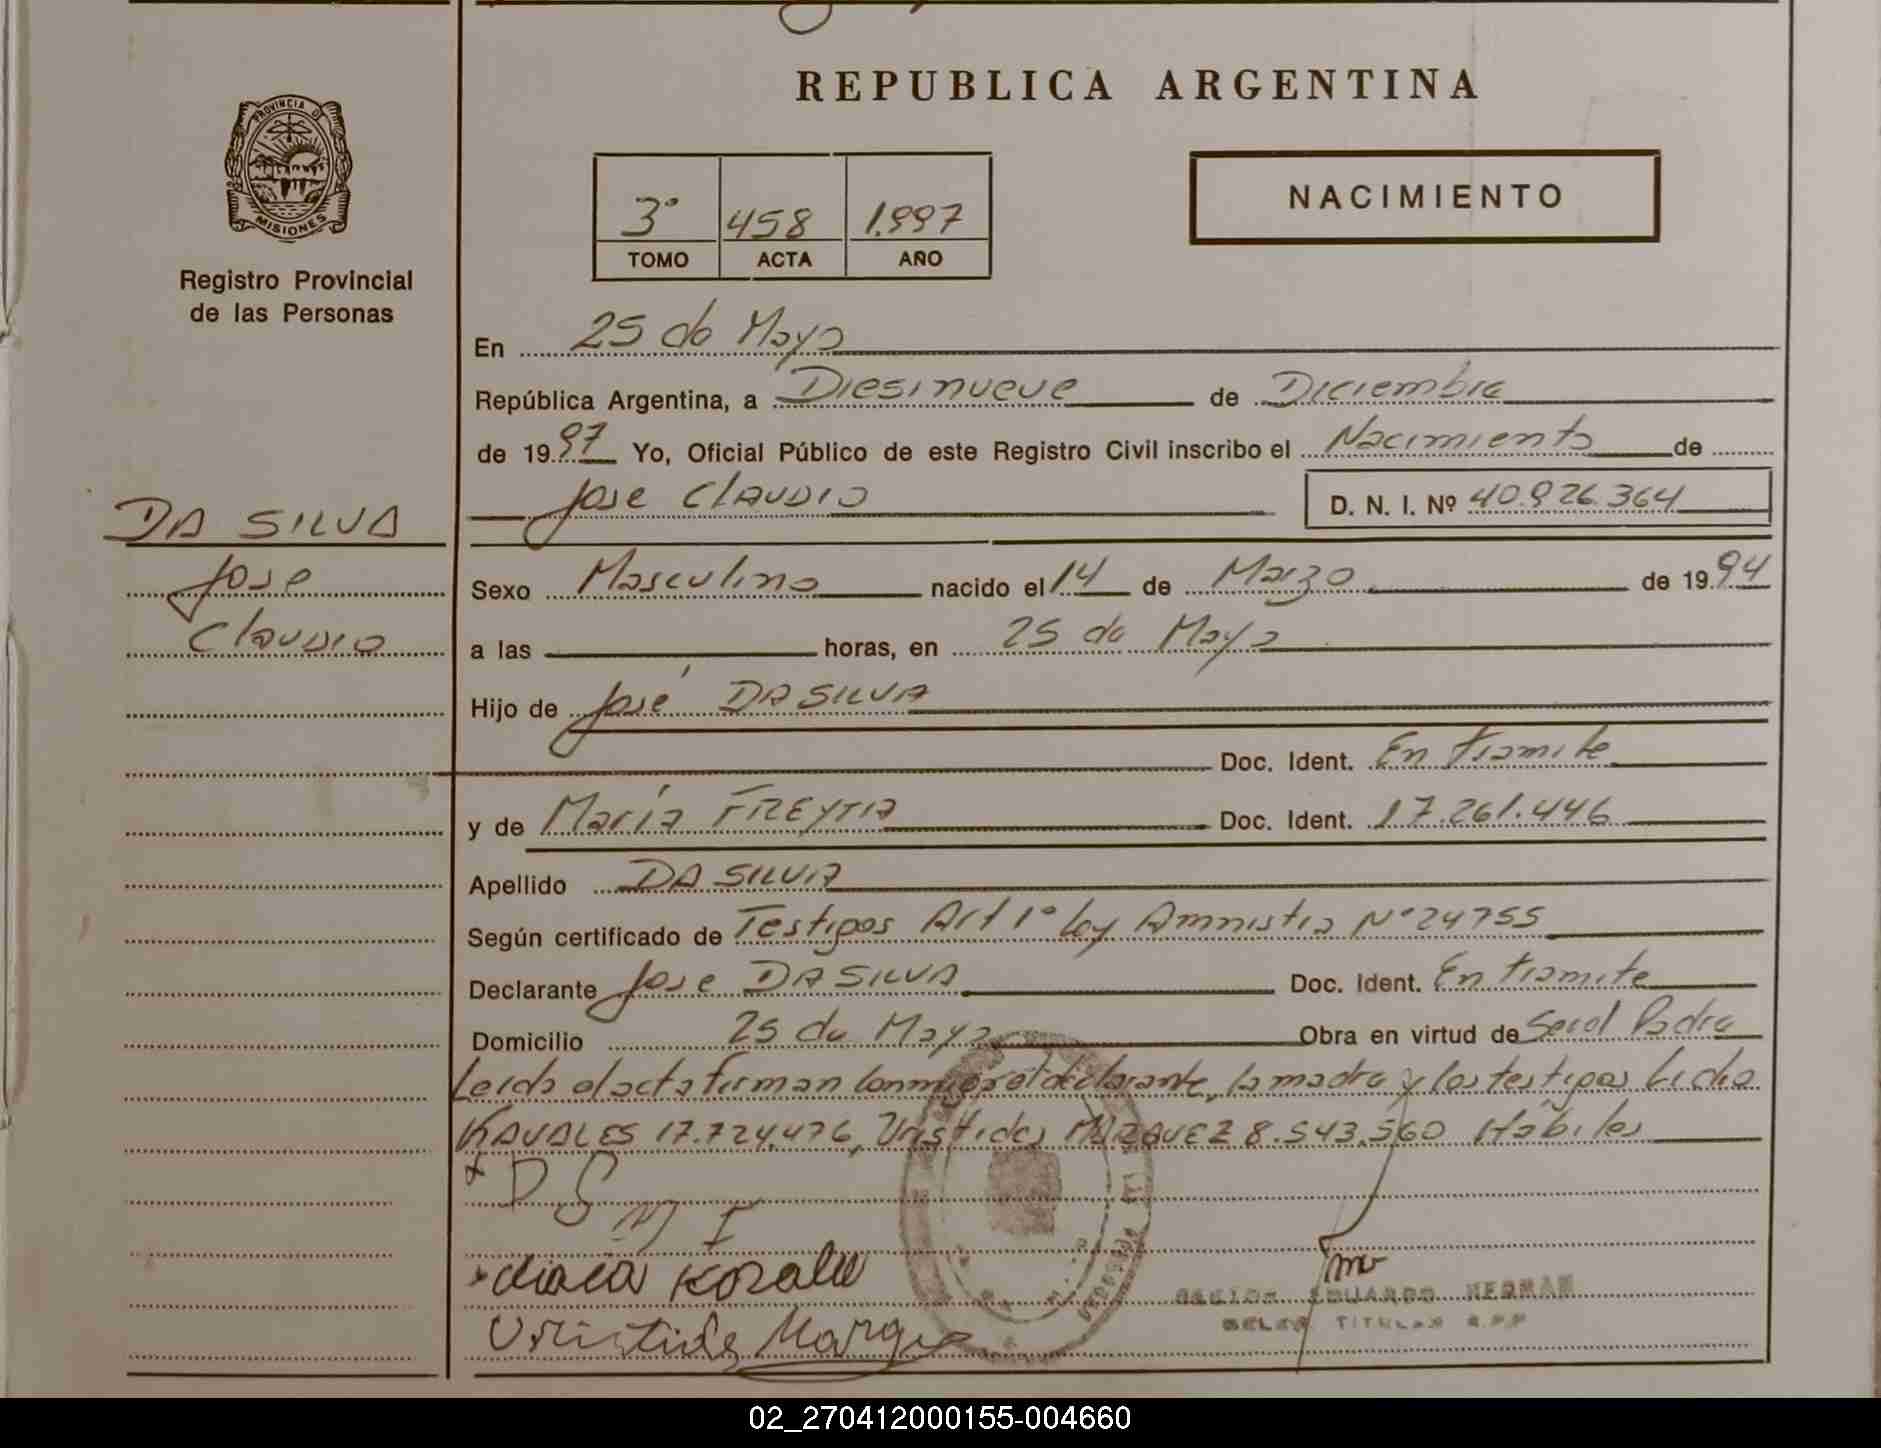 REPUBLICA ARGENTINA
PROVINCIA DE
MISIONES
Registro Provincial
de las Personas
3° 458 1.997
TOMO ACTA AÑO
NACIMIENTO
En 25 de Mayo
República Argentina, a Diesinueve de Diciembre
de 1997 Yo, Oficial Público de este Registro Civil inscribo el Nacimiento de
Jose CLAUDIO D. N. I. Nº 40.926.364
DA SILVA
Jose
CLAUDIO
Sexo Masculino nacido el 14 de Marzo de 1994
a las horas, en 25 de Mayo
Hijo de José DA SILVA
Doc. Ident. En tramite
y de María FREYTA Doc. Ident. 17.261.446
Apellido DA SILVA
Según certificado de Testigos Art 1° ley Amnistia N° 24755
Declarante Jose DA SILVA Doc. Ident. En tramite
Domicilio 25 de Mayo Obra en virtud de Padre
Leida el acta firman conmigo el declarante, la madre y los testigos Lidia
KAVALES 17.724.476, Uristides MARQUEZ 8.543.560 Hábiles
D S
M F
EDUARDO
TITULAR R.P.P
02_270412000155-004660